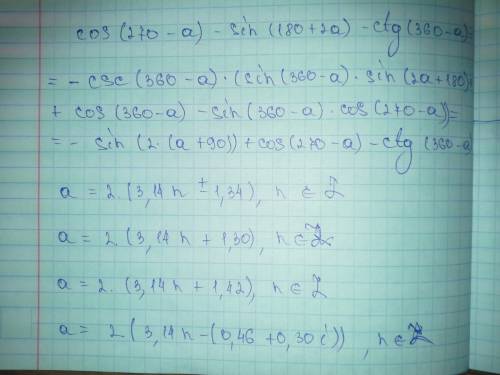 cos (270 - a) - sin (180 + 2a) - ctg (360 - a) =
= - csc (360 - a) · (sin (360 - a) · sin (2a + 180) +
+ cos (360 - a) - sin (360 - a) · cos (270 - a)) =
= - sin (2 · (a + 90)) + cos (270 - a) - ctg (360 - a)
a = 2 · (3,14 n ± 1,34), n ∈ Z
a = 2 · (3,14 n + 1,30), n ∈ Z
a = 2 · (3,14 n + 1,42), n ∈ Z
a = 2 (3,14 n - (0,46 + 0,30 i)), n ∈ Z